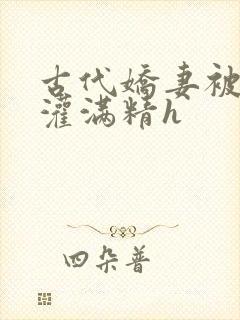 古代娇妻被
灌满精h
四朵普